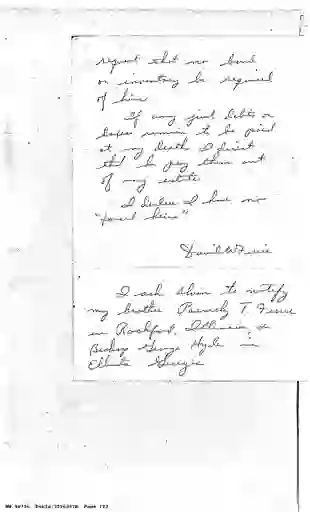 request that no bond
or inventory be required
of him
If any just debts or
taxes remain to be paid
at my death I direct
that he pay them out
of my estate.
I declare I have no
"forced heirs"
David W
I ask Alvin to notify
my brother T.
in Rockford, Illinois, &
Bishop George Hyde in
Georgia
Page